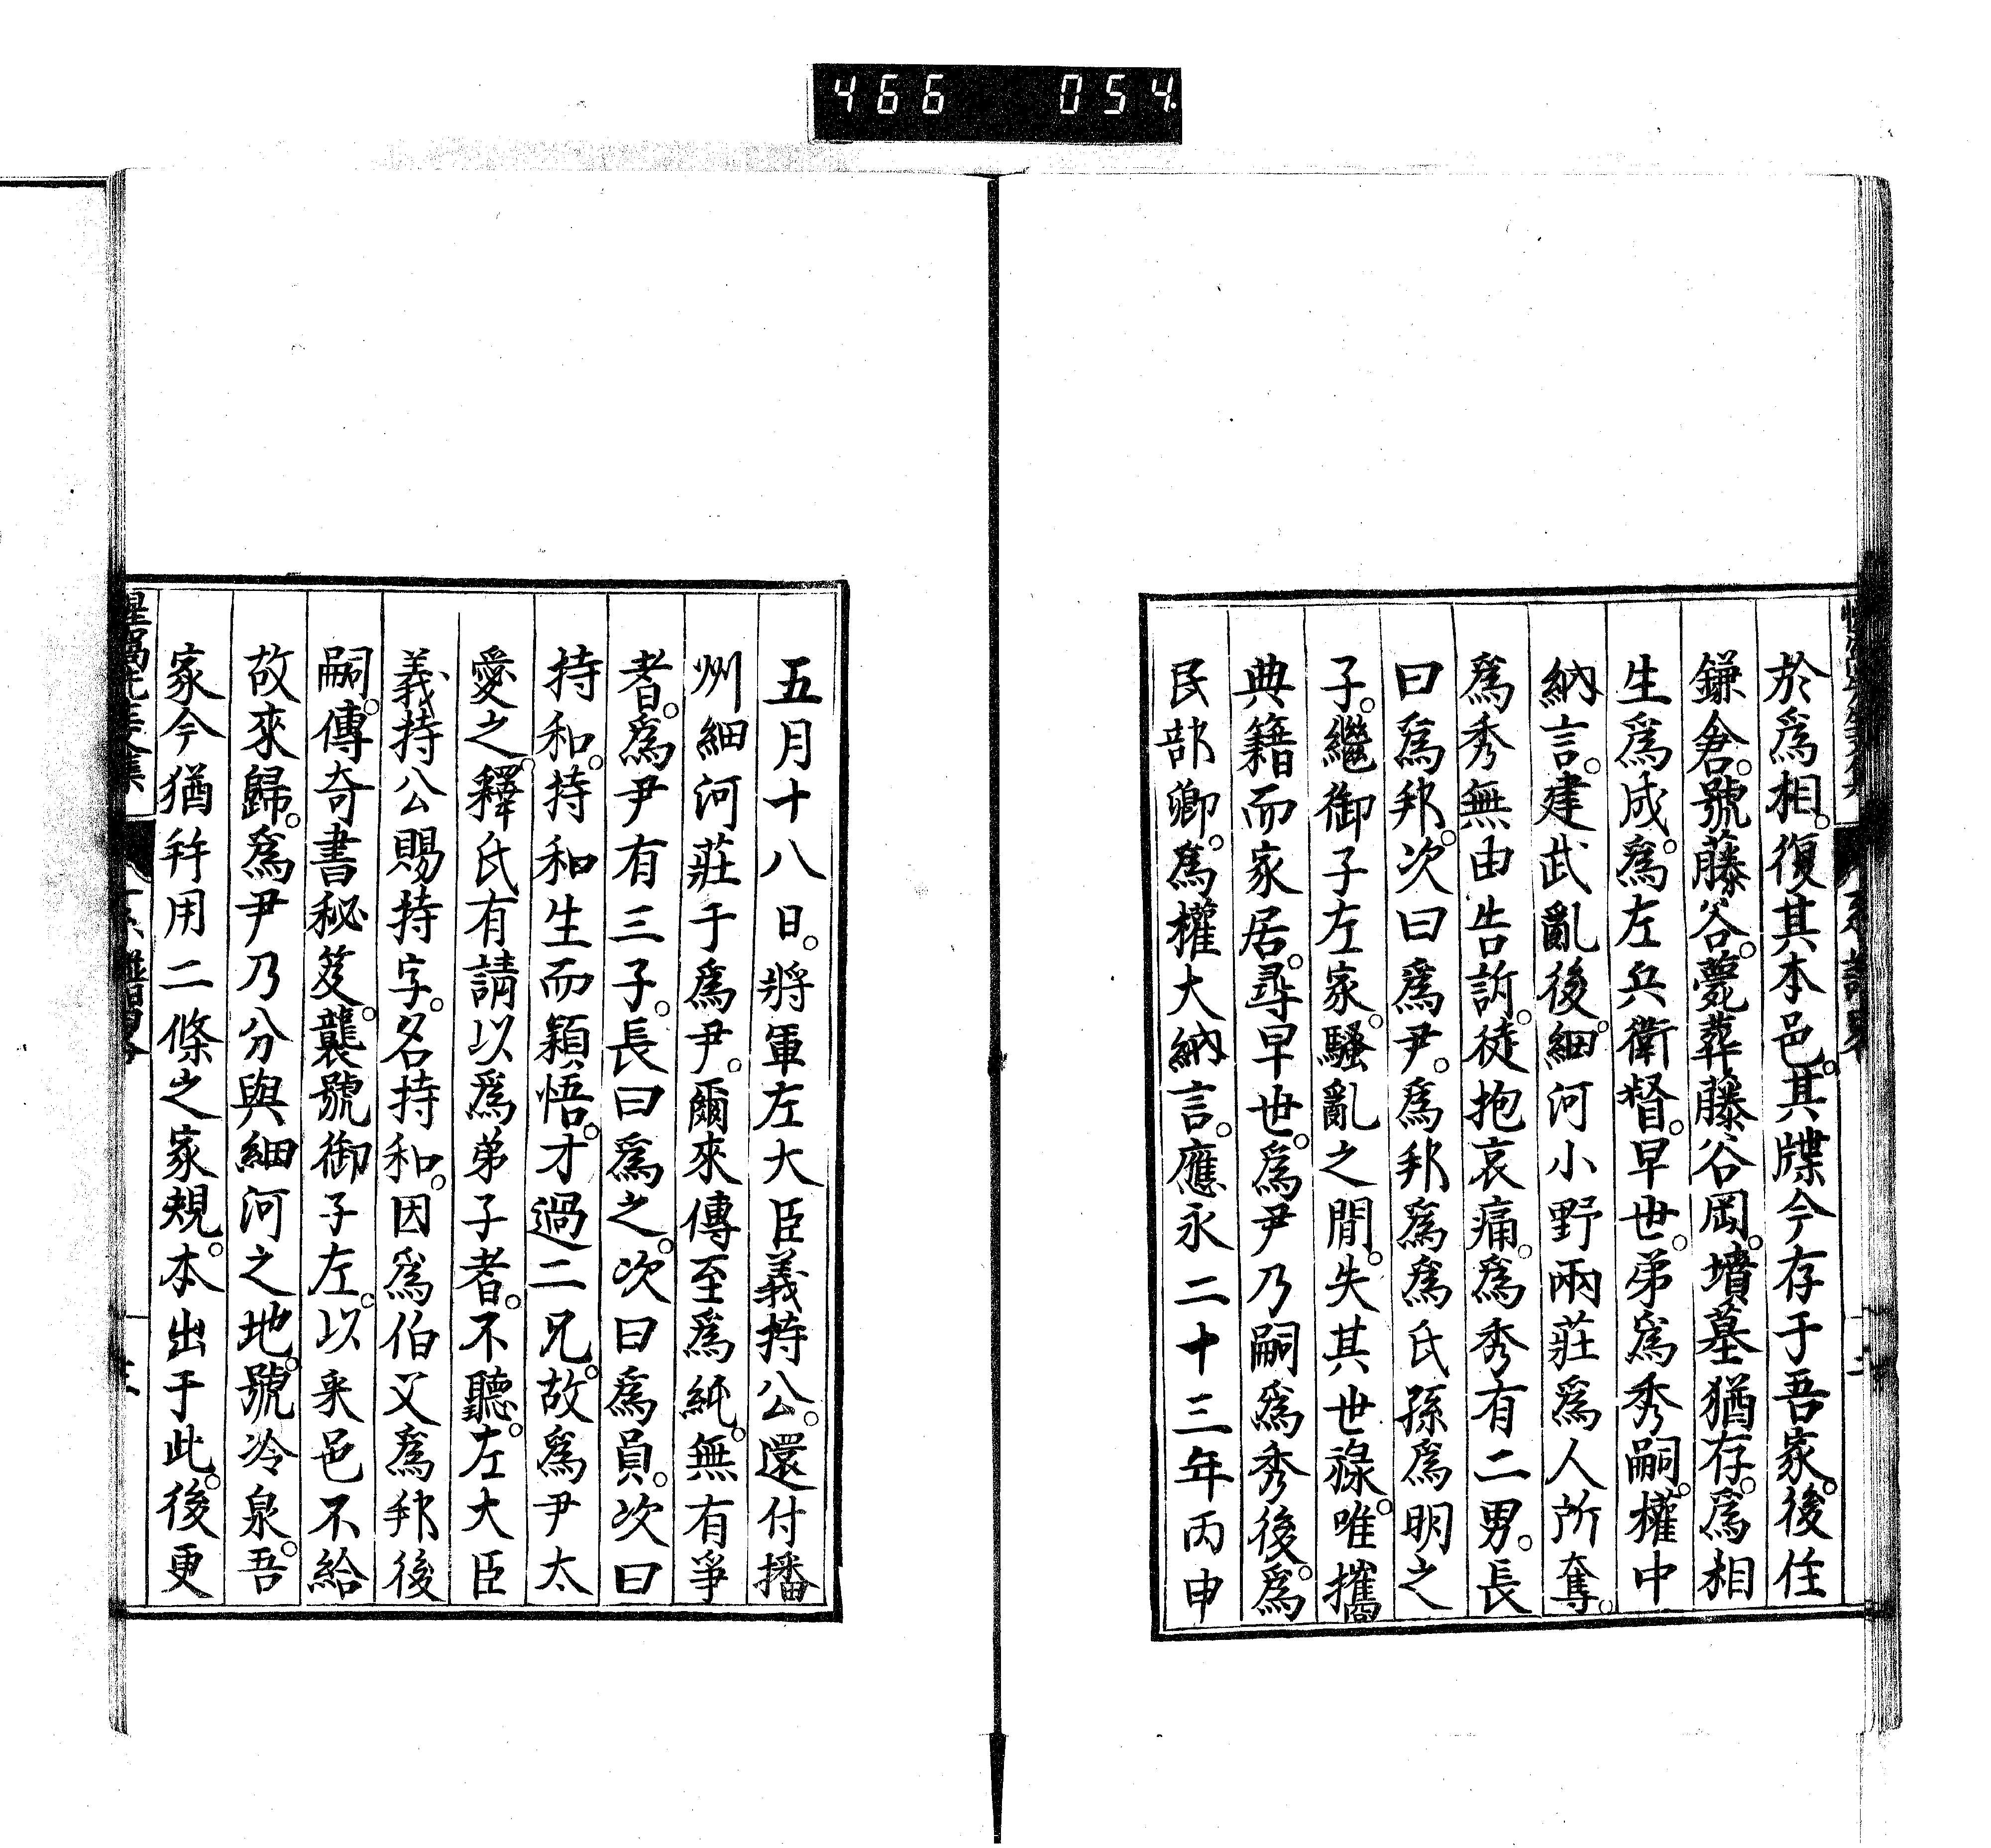 466 054
於爲相。復其本邑。其牒今存于吾家。後住
鎌倉。號藤谷。薨葬藤谷岡。墳墓猶存。爲相
生爲成。爲左兵衛督。早世。弟爲秀嗣。權中
納言。建武亂後。細河小野兩莊爲人所奪。
爲秀無由告訴。徒抱哀痛。爲秀有二男。長
曰爲邦。次曰爲尹。爲邦爲爲氏孫爲明之
子。繼御子左家。騷亂之間。失其世祿。唯攜
典籍而家居。尋早世。爲尹乃嗣爲秀後。爲
民部卿。爲權大納言。應永二十三年丙申
五月十八日。將軍左大臣義持公。還付播
州細河莊于爲尹。爾來傳至爲純。無有爭
者。爲尹有三子。長曰爲之。次曰爲員。次曰
持和。持和生而穎悟。才過二兄。故爲尹太
愛之。釋氏有請以爲弟子者。不聽。左大臣
義持公賜持字。名持和。因爲伯父爲邦後
嗣。傳奇書秘笈。襲號御子左。以來邑不給
故來歸。爲尹乃分與細河之地。號冷泉。吾
家今猶幷用二條之家規。本出于此。後更